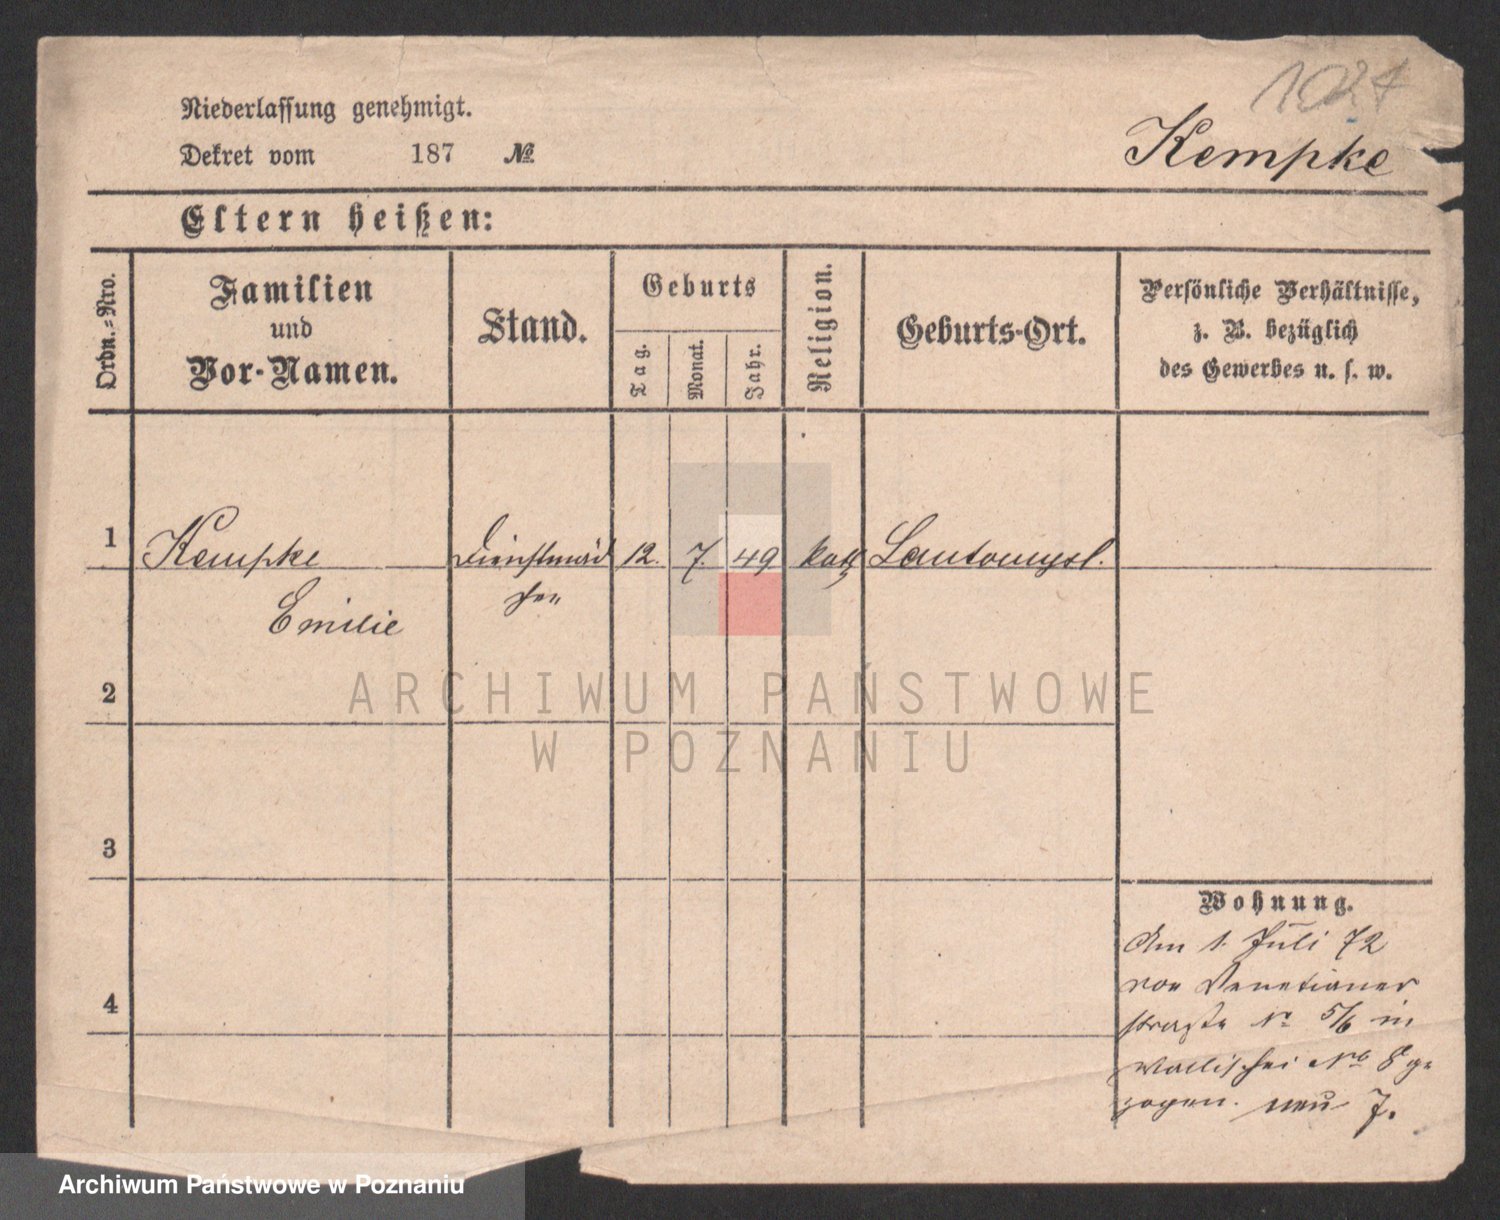 1024
Niederlassung genehmigt.
Dekret vom 187 №
Kempke
Eltern heißen:
Ordn.=Nro.
Familien
und
Vor-Namen.
Stand.
Geburts
Tag.
Monat.
Jahr.
Religion.
Geburts-Ort.
Persönliche Verhältnisse,
z. B. bezüglich
des Gewerbes u. s. w.
1 Kempke Dienstmäd 12. 7. 49 kath Santomysl.
Emilie chen
2
ARCHIWUM PAŃSTWOWE
W POZNANIU
3
Wohnung.
Am 1. Juli 72
von Venetianer
straße № 5/6 in
Wallischei № 8 ge
zogen. neu 7.
4
Archiwum Państwowe w Poznaniu